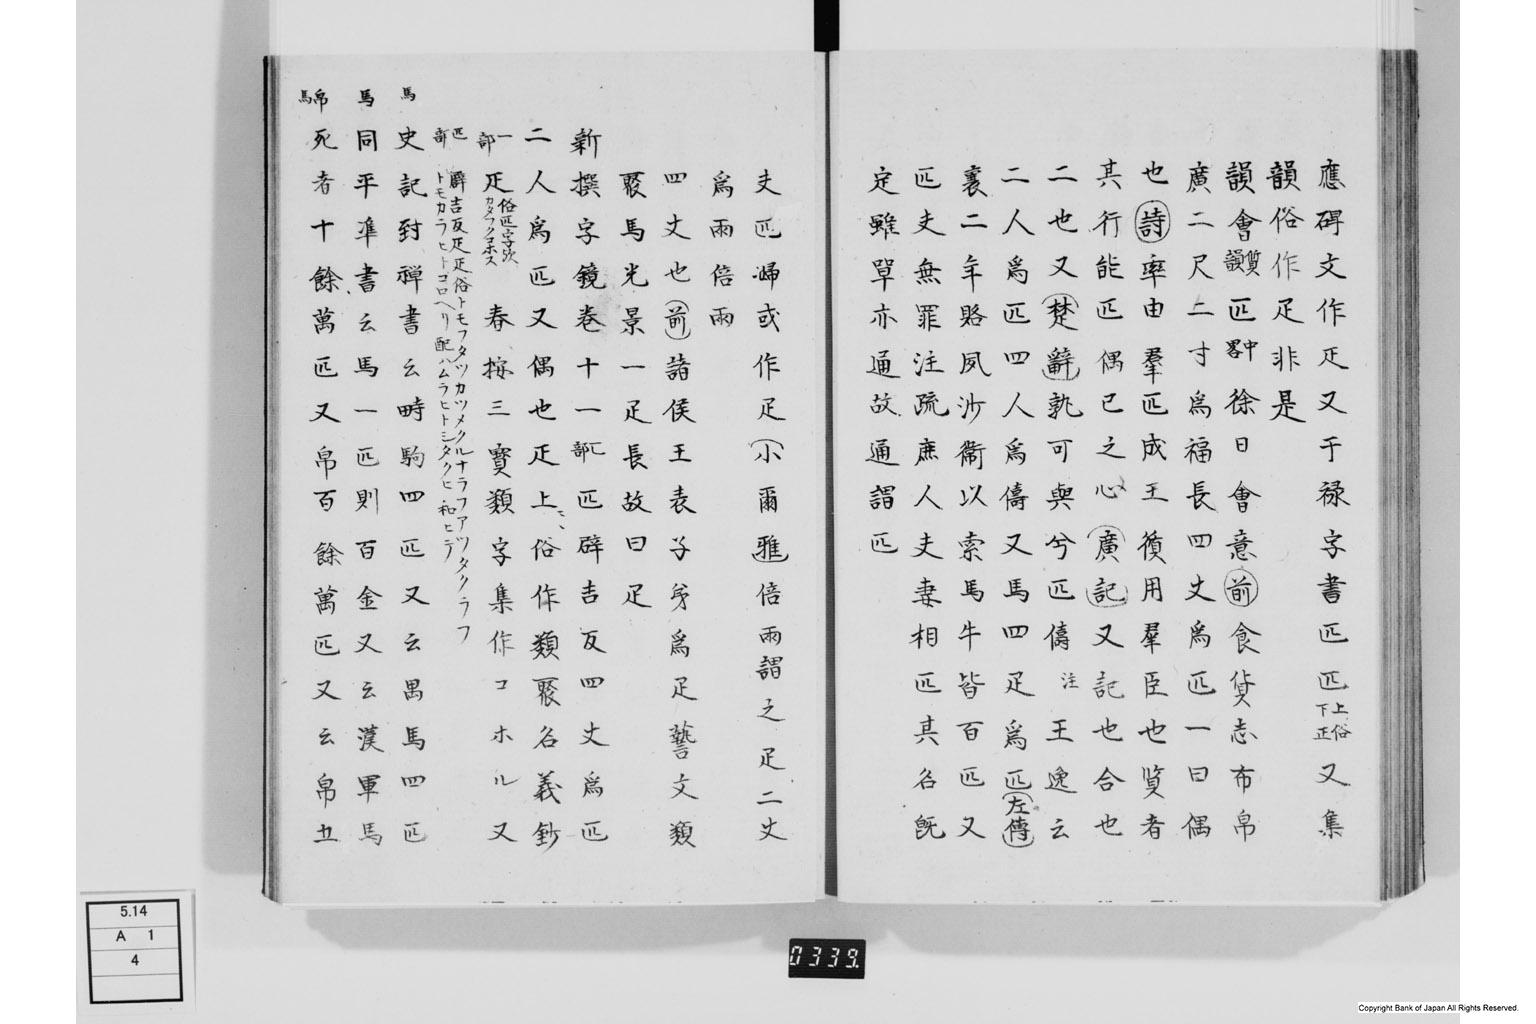 應碍文作疋又于禄字書匹匹上俗下正又集
韻俗作疋非是
韻會質韻匹中畧徐曰會意前食貨志布帛
廣二尺二寸爲福長四丈爲匹一曰偶
也詩率由羣匹成王復用羣臣也賢者
其行能匹偶已之心廣記又記也合也
二也又楚辭孰可與兮匹儔注王逸云
二人爲匹四人爲儔又馬四疋爲匹左傳
襄二年賂夙沙衞以索馬牛皆百匹又
匹夫無罪注疏庶人夫妻相匹其名旣
定雖單亦通故通謂匹
夫匹婦或作疋小爾雅倍兩謂之疋二丈
爲兩倍兩
四丈也前諸侯王表子孛爲疋藝文類
聚馬光景一疋長故曰疋
新撰字鏡巻十一匚部匹辟吉反四丈爲匹
二人爲匹又偶也疋上俗作類聚名義鈔
一部疋俗匹字欤カタフクコホス春按三寳類字集作コホル又
匹部辟吉反疋疋俗トモフタツカツメクルナラフアツタクラフ
トモカラヒトコロヘリ配ハムラヒトシタクヒ和ヒテ
馬史記封禅書云畤駒四匹又云禺馬四匹
馬同平準書云馬一匹則百金又云漢軍馬
馬帛死者十餘萬匹又帛百餘萬匹又云帛五
0339.
5.14
A 1
4
Copyright Bank of Japan All Rights Reserved.